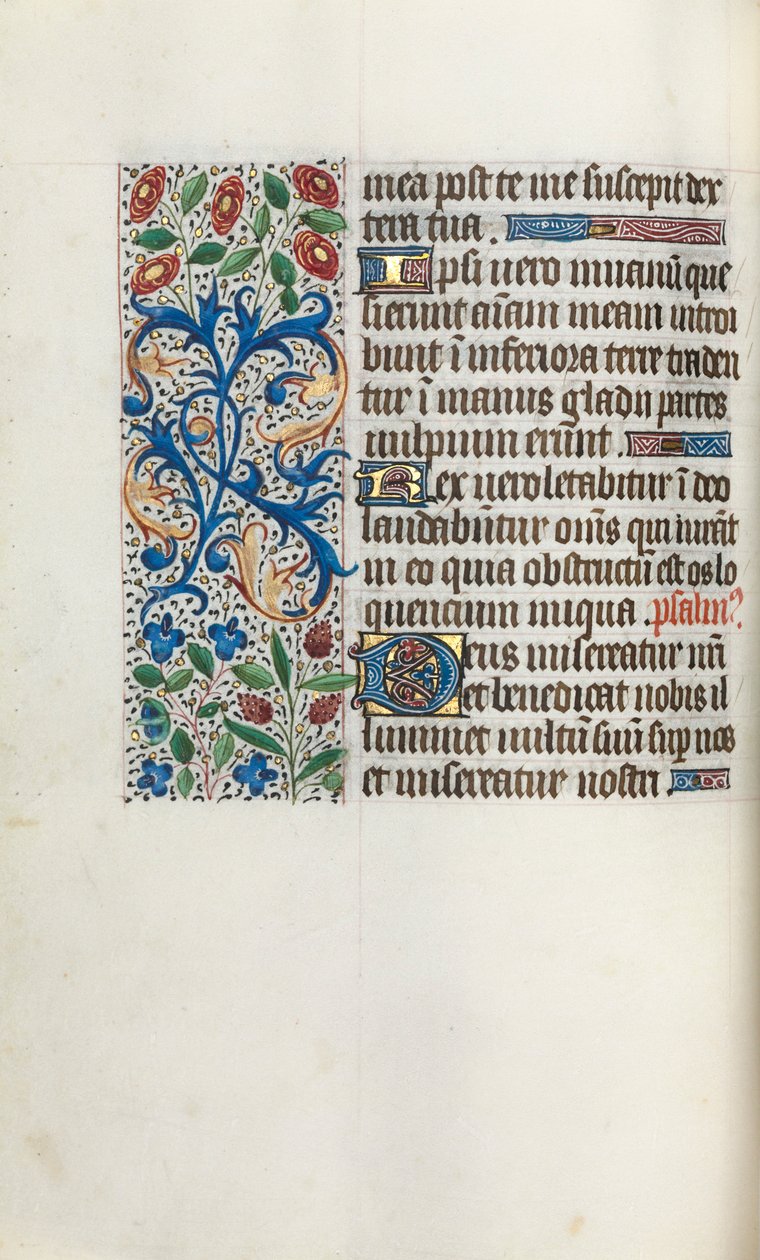 mea post te me suscepit dex
tera tua.
Ipsi vero in vanū que
sierunt aīam meam introi
bunt ī inferiora terre traden
tur ī manus gladii partes
vulpium erunt.
Rex vero letabitur ī deo
laudabūtur oms̄ qui iurāt
in eo quia obstructū est os lo
quencium iniqua. psalmꝰ.
Deus misereatur nr̄i
et benedicat nobis il
luminet vultū suū sup nos
et misereatur nostri.